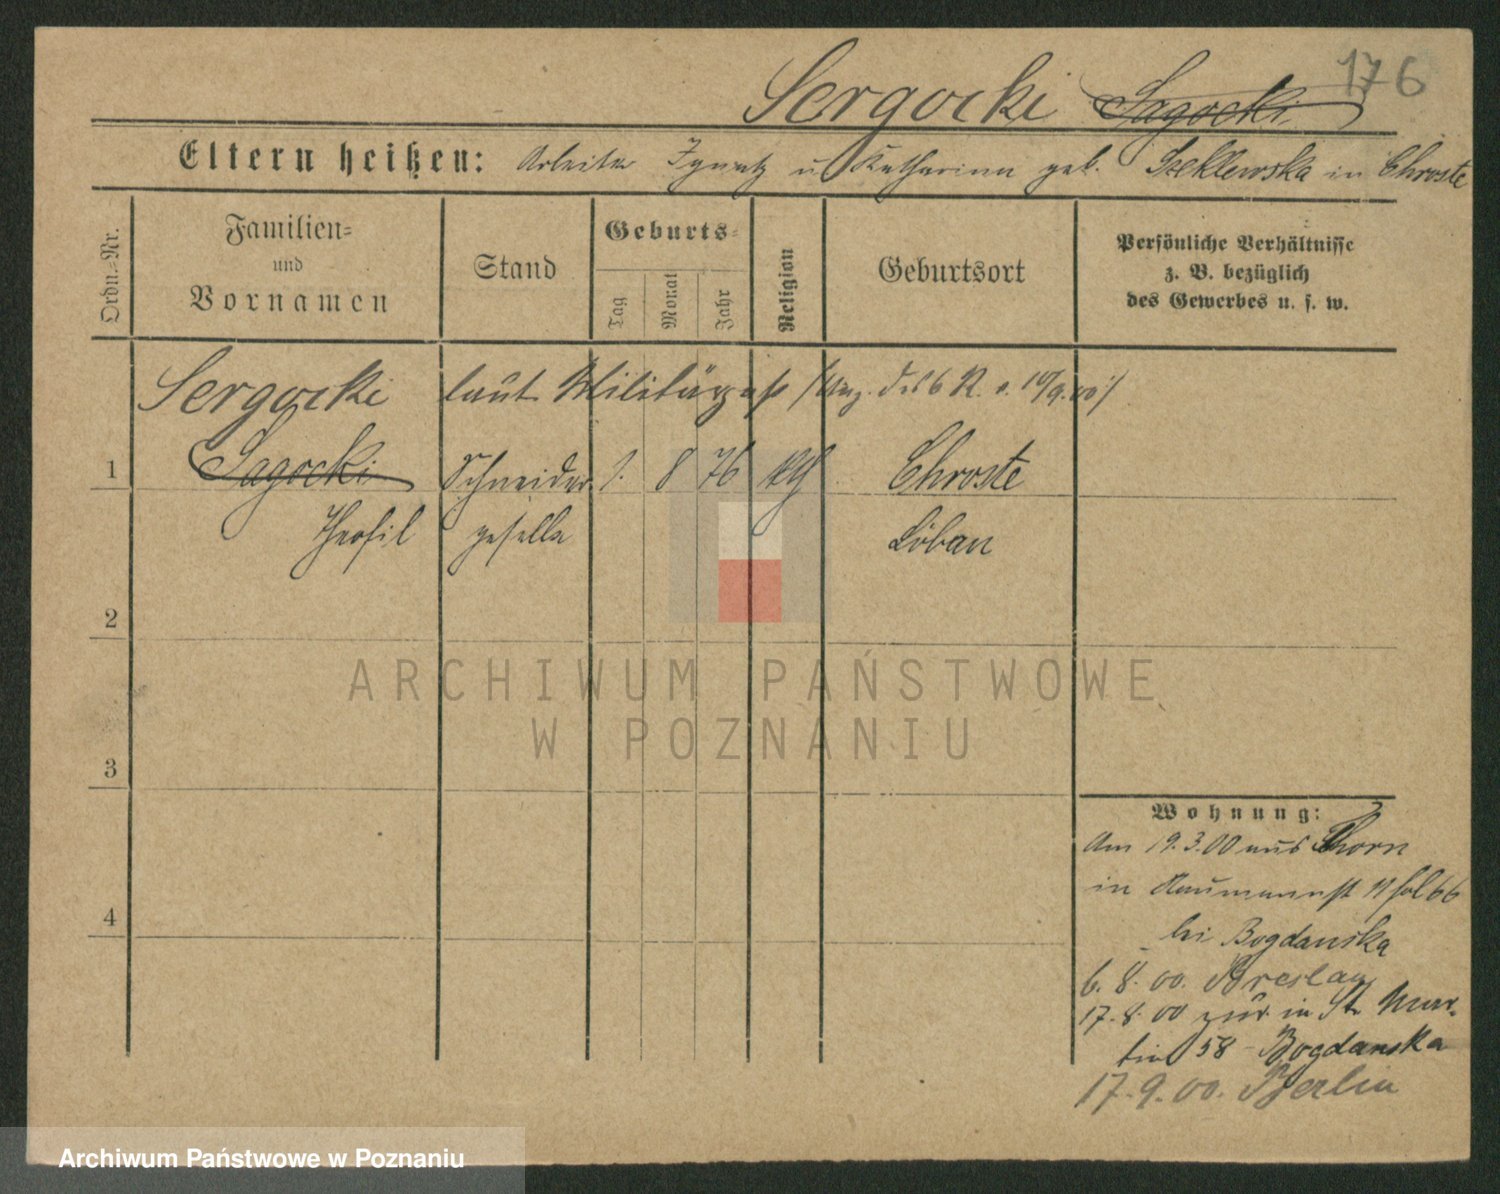 176
Sergocki Sagocki
Eltern heißen: Arbeiter Ignatz u Katharina geb. Szeklewska in Chroste
Ordn.-Nr.
Familien-
und
Vornamen
Stand
Geburts-
Tag
Monat
Jahr
Religion
Geburtsort
Persönliche Verhältnisse
z. B. bezüglich
des Gewerbes u. s. w.
Sergocki laut Militärpaß /Anz. d. 6 R. v. 10/9.00/
1 Sagocki Schneider 1. 8 76 kth Chroste
Theofil geselle Löbau
2
3
4
Wohnung:
Am 19.3.00 aus Thorn
in Naumannst 11 fol 66
bei Bogdanska
6. 8. 00. Breslau
17. 8. 00 zur. in St. Mar-
tin 58 Bogdanska
17. 9. 00. Berlin
ARCHIWUM PAŃSTWOWE
W POZNANIU
Archiwum Państwowe w Poznaniu